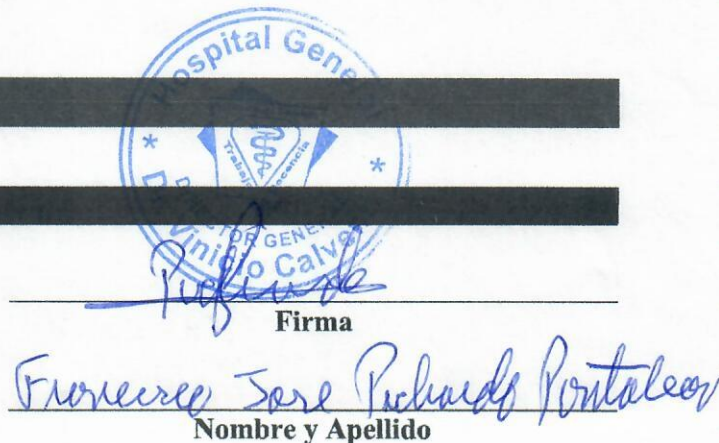 Hospital General
Trabajo
Vinicio Calven
Firma
Francisco Jose Pichardo Pantaleon
Nombre y Apellido